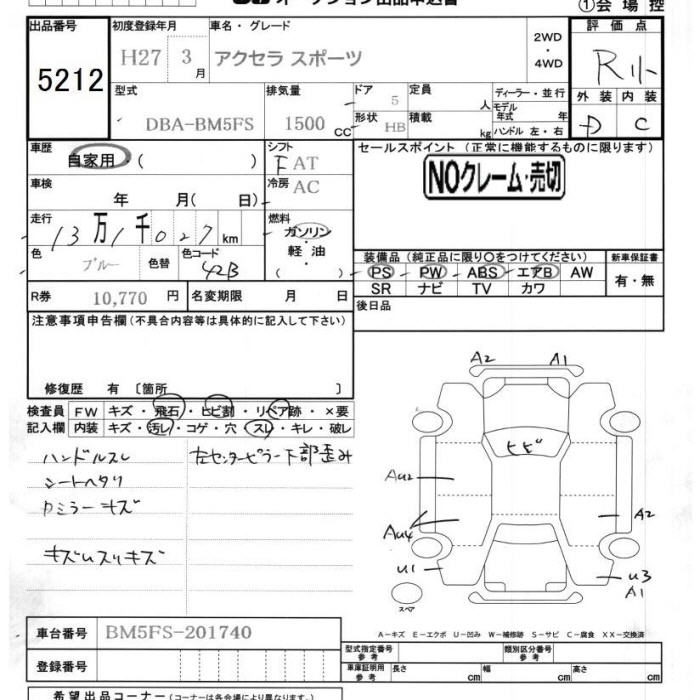 オークション出品申込書
①会場控
出品番号 初度登録年月 車名・グレード 2WD ・ 4WD 評価点
5212 H27 3月 アクセラ スポーツ R小
型式 排気量 ドア 定員 人 ディーラー・並行 外装 内装
DBA-BM5FS 1500 CC 5 モデル年式 年 D C
形状 HB 積載 kg ハンドル 左・右
車歴 シフト セールスポイント (正常に機能するものに限ります)
自家用・( ) F AT NOクレーム・売切
車検 年 月( 日) 冷房 AC
走行 13万1千027km 燃料 ガソリン・軽油・( )
色 ブルー 色替 色コード 42B
装備品(純正品に限り○をつけてください) 新車保証書
PS PW ABS エアB AW 有・無
SR ナビ TV カワ
R券 10,770円 名変期限 月 日 後日品
注意事項申告欄(不具合内容等は具体的に記入して下さい)
修復歴 有 〔箇所 〕
検査員記入欄 FW キズ・飛石・ヒビ割・リペア跡・×要
内装 キズ・汚レ・コゲ・穴・スレ・キレ・破レ
ハンドルスレ 左センターピラー下部歪み
シートヘタリ
Rミラーキズ
キズUスリキズ
A2 A1
ヒビ
AU2
A2
AU4
U1 U3
A1
スペア
A-キズ E-エクボ U-凹み W-補修跡 S-サビ C-腐食 XX-交換済
車台番号 BM5FS-201740
型式指定番号 参考 類別区分番号 参考
登録番号 車庫証明用 参考 長さ cm 幅 cm 高さ cm
希望出品コーナー(コーナーは各会場により異なります。)